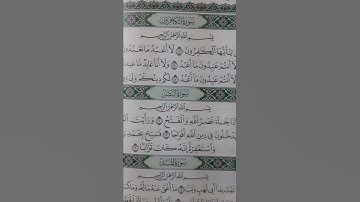 سُورَةُ الكَافِرُونَ
بِسْمِ اللَّهِ الرَّحْمَٰنِ الرَّحِيمِ
يَٰٓأَيُّهَا ٱلْكَٰفِرُونَ لَآ أَعْبُدُ مَا تَعْبُدُونَ
لَآ أَنتُمْ عَٰبِدُونَ مَآ أَعْبُدُ وَلَآ أَنَا۠ عَابِدٌ مَّا
أَنتُمْ عَٰبِدُونَ مَآ أَعْبُدُ لَكُمْ دِينُكُمْ وَلِيَ
سُورَةُ النَّصْرِ
بِسْمِ اللَّهِ الرَّحْمَٰنِ الرَّحِيمِ
جَآءَ نَصْرُ ٱللَّهِ وَٱلْفَتْحُ وَرَأَيْتَ
فِى دِينِ ٱللَّهِ أَفْوَاجًا فَسَبِّحْ بِحَمْدِ
وَٱسْتَغْفِرْهُ إِنَّهُۥ كَانَ تَوَّابًۢا
سُورَةُ المَسَدِ
بِسْمِ اللَّهِ الرَّحْمَٰنِ الرَّحِيمِ
تَبَّتْ يَدَآ أَبِى لَهَبٍ وَتَبَّ مَآ أَغْنَىٰ عَنْهُ مَالُهُۥ